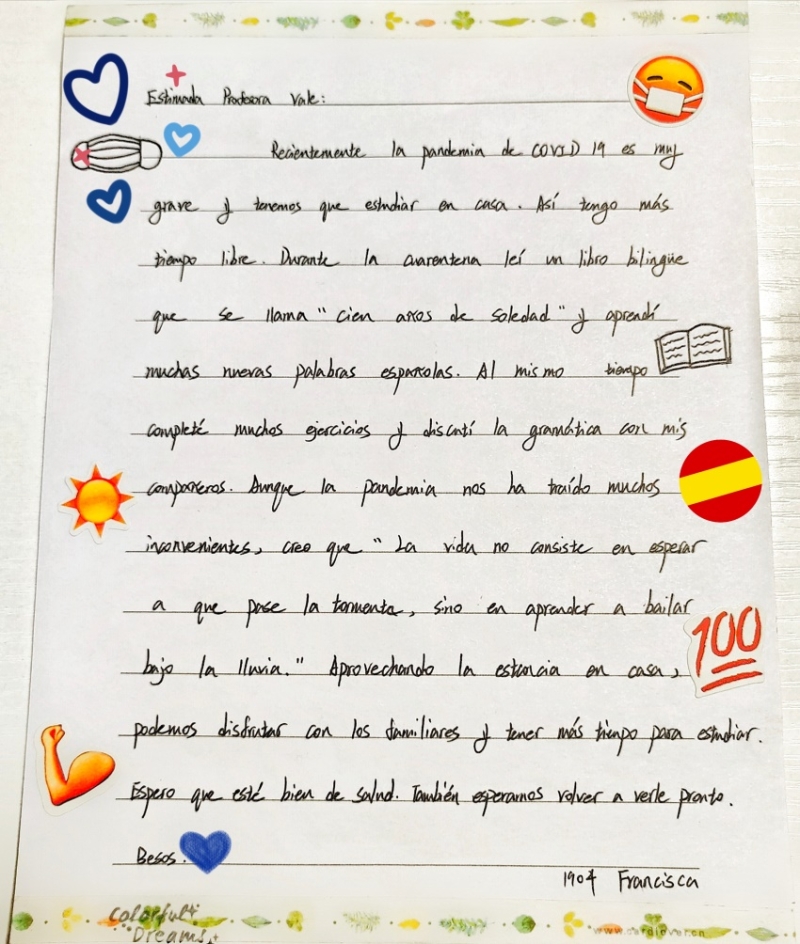 Estimada Profesora Vale:
Recientemente la pandemia de COVID 19 es muy
grave y tenemos que estudiar en casa. Así tengo más
tiempo libre. Durante la cuarentena leí un libro bilingüe
que se llama "cien años de soledad" y aprendí
muchas nuevas palabras españolas. Al mismo tiempo
completé muchos ejercicios y discutí la gramática con mis
compañeros. Aunque la pandemia nos ha traído muchos
inconvenientes, creo que "La vida no consiste en esperar
a que pase la tormenta, sino en aprender a bailar
100
bajo la lluvia." Aprovechando la estancia en casa,
podemos disfrutar con los familiares y tener más tiempo para estudiar.
Espero que esté bien de salud. También esperamos volver a verle pronto.
Besos.
1904 Francisca
Colorful
Dreams